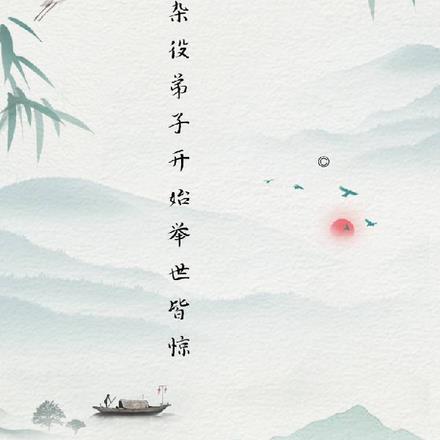 杂役弟子开始举世皆惊
©